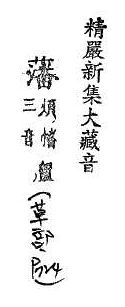 精嚴新集大藏音
藩煩幡
三音
(草部 P24)